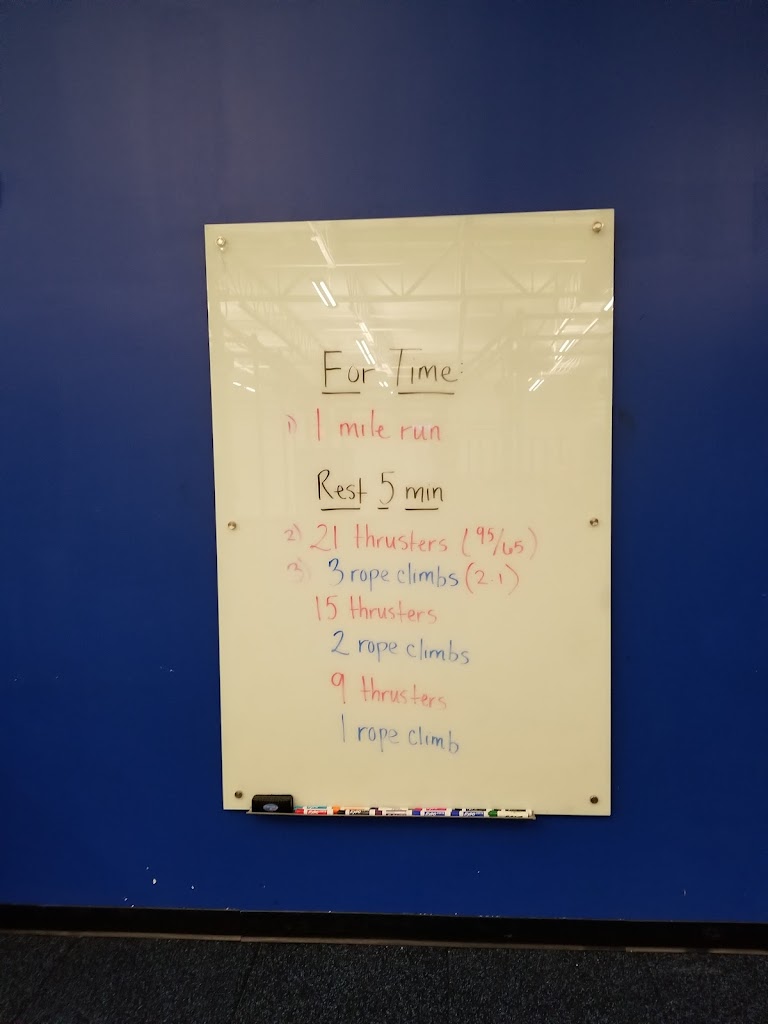 For Time:
1) 1 mile run
Rest 5 min
2) 21 thrusters (95/65)
3) 3 rope climbs (2.1)
15 thrusters
2 rope climbs
9 thrusters
1 rope climb